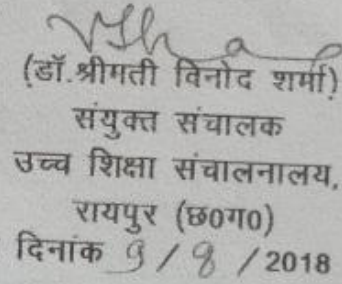 (डॉ.श्रीमती विनोद शर्मा)
संयुक्त संचालक
उच्च शिक्षा संचालनालय,
रायपुर (छ0ग0)
दिनांक 9 / 8 / 2018